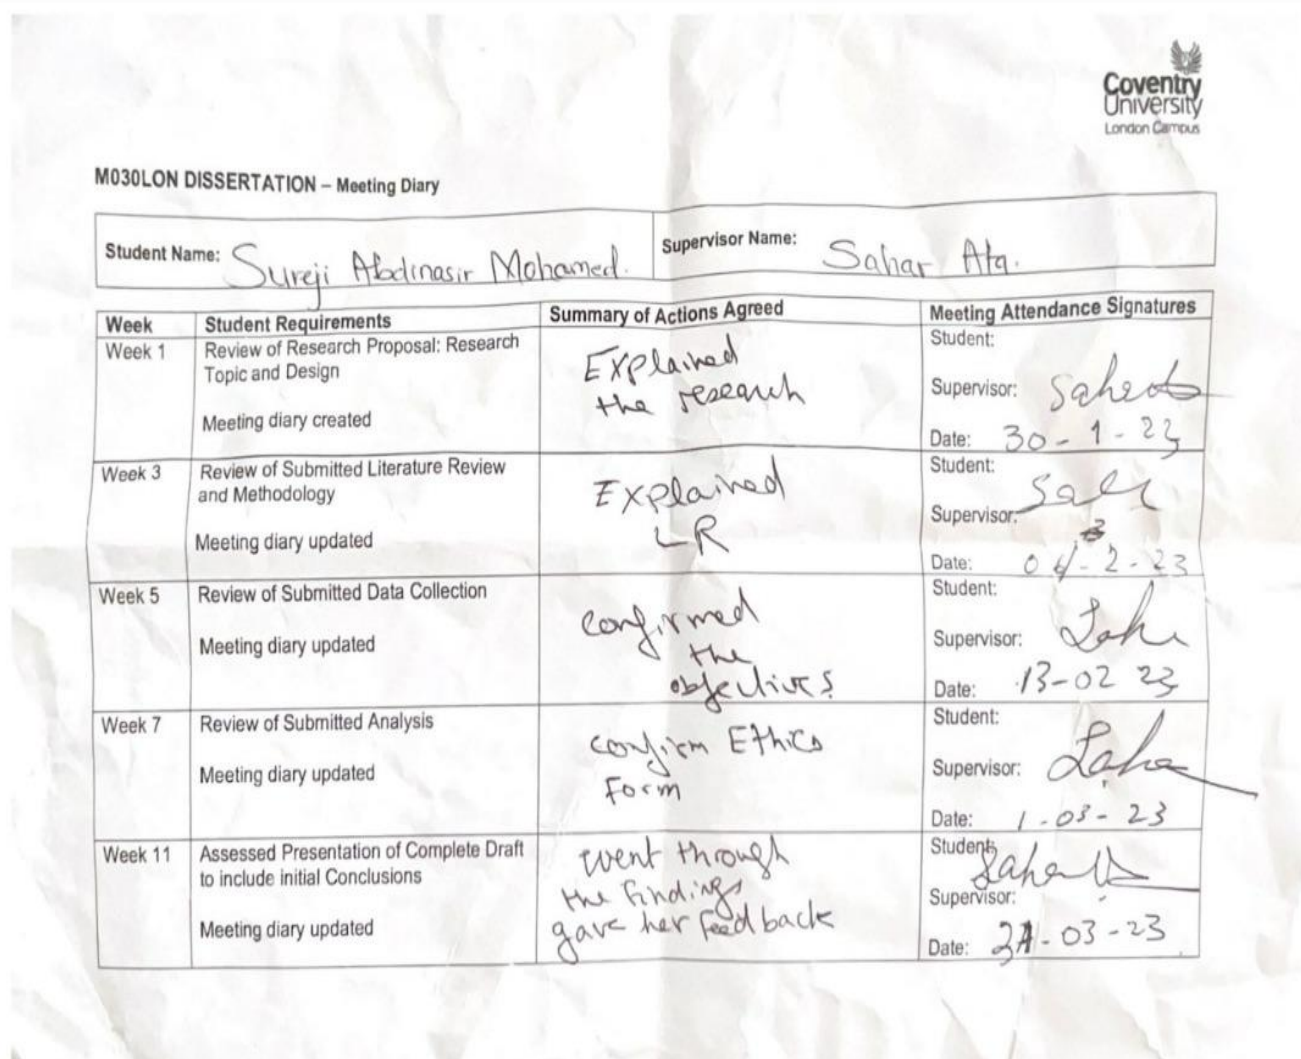 Coventry
University
London Campus
M030LON DISSERTATION – Meeting Diary
Student Name: Sureji Abdinasir Mohamed. Supervisor Name: Sahar Ata.
Week Student Requirements Summary of Actions Agreed Meeting Attendance Signatures
Week 1 Review of Research Proposal: Research
Topic and Design
Meeting diary created
Explained
the research
Student:
Supervisor:
Date: 30-1-23
Week 3 Review of Submitted Literature Review
and Methodology
Meeting diary updated
Explained
LR
Student:
Supervisor:
Date: 2-23
Week 5 Review of Submitted Data Collection
Meeting diary updated
confirmed
the
objectives
Student:
Supervisor:
Date: 13-02 23
Week 7 Review of Submitted Analysis
Meeting diary updated
confirm Ethics
Form
Student:
Supervisor:
Date: 1-03-23
Week 11 Assessed Presentation of Complete Draft
to include initial Conclusions
Meeting diary updated
went through
the findings
gave her feedback
Student:
Supervisor:
Date: 03-23